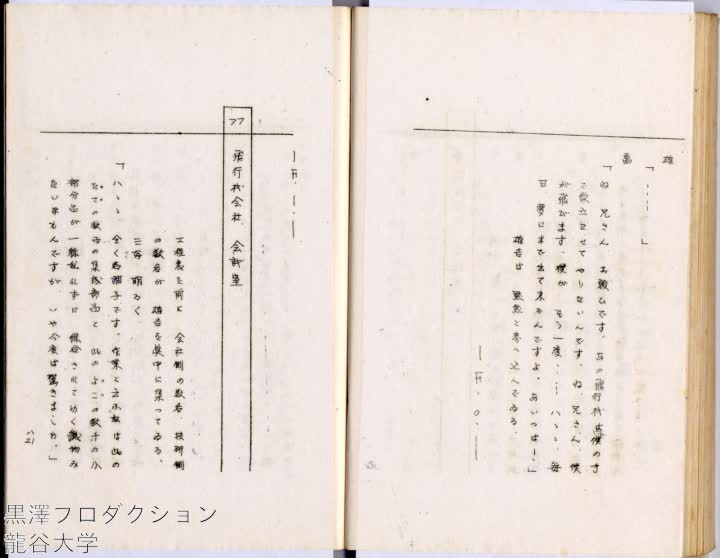 雄
「‥‥‥」
萬
「ね 兄さん お願ひです、百の飛行機は僕の手
で完成させてやりたいんです、ね、兄さん、僕
が飛びます、僕が もう一度‥‥ ハヽヽ、毎
日 夢にまで出て来るんですよ、あいつは‥、」
雄吉は 黙然と考へ込んでゐる。
―F・O・―
―F・I・―
77 飛行機会社 会議室
工程表を前に 会社側の数名 技研側
の数名が 雄吉を真中に集ってゐる、
三谷 明るく
「ハヽヽ 全く お調子です。作業と云ふ奴は 此の
たての数百の集成部品と 此の よこの数千の小
部分品が 一絲乱れずに 保合されて ゆく 織物み
たいなもんですが、いや今度は驚きました。」
八21
黒澤プロダクション
龍谷大学